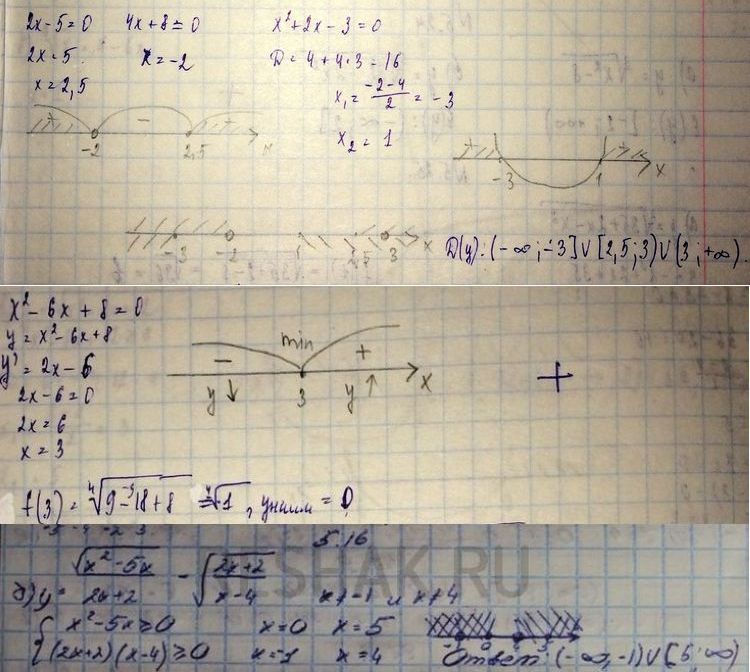 2x-5=0 4x+8≠0 x²+2x-3=0
2x=5. x=-2 D=4+4·3=16
x=2,5 x₁=(-2-4)/2=-3
x₂=1
+ - +
-2 2,5 x
+ +
-3 1 x
-3 -2 1 2,5 3 x
D(y):(-∞;-3]∪[2,5;3)∪(3;+∞).
x²-6x+8=0
y=x²-6x+8
y'=2x-6
2x-6=0
2x=6
x=3
min
- +
y↓ 3 y↑ x
+
f(3)=⁴√(9-18+8)=⁴√-1, yнаим=0
5.16
б) y=√(x²-5x)/(2x+2) - √((2x+2)/(x-4)) x≠-1 и x≠4
SHAK.RU
{x²-5x≥0 x=0 x=5
(2x+2)(x-4)≥0 x=-1 x=4
Ответ: (-∞,-1)∪[5;∞)